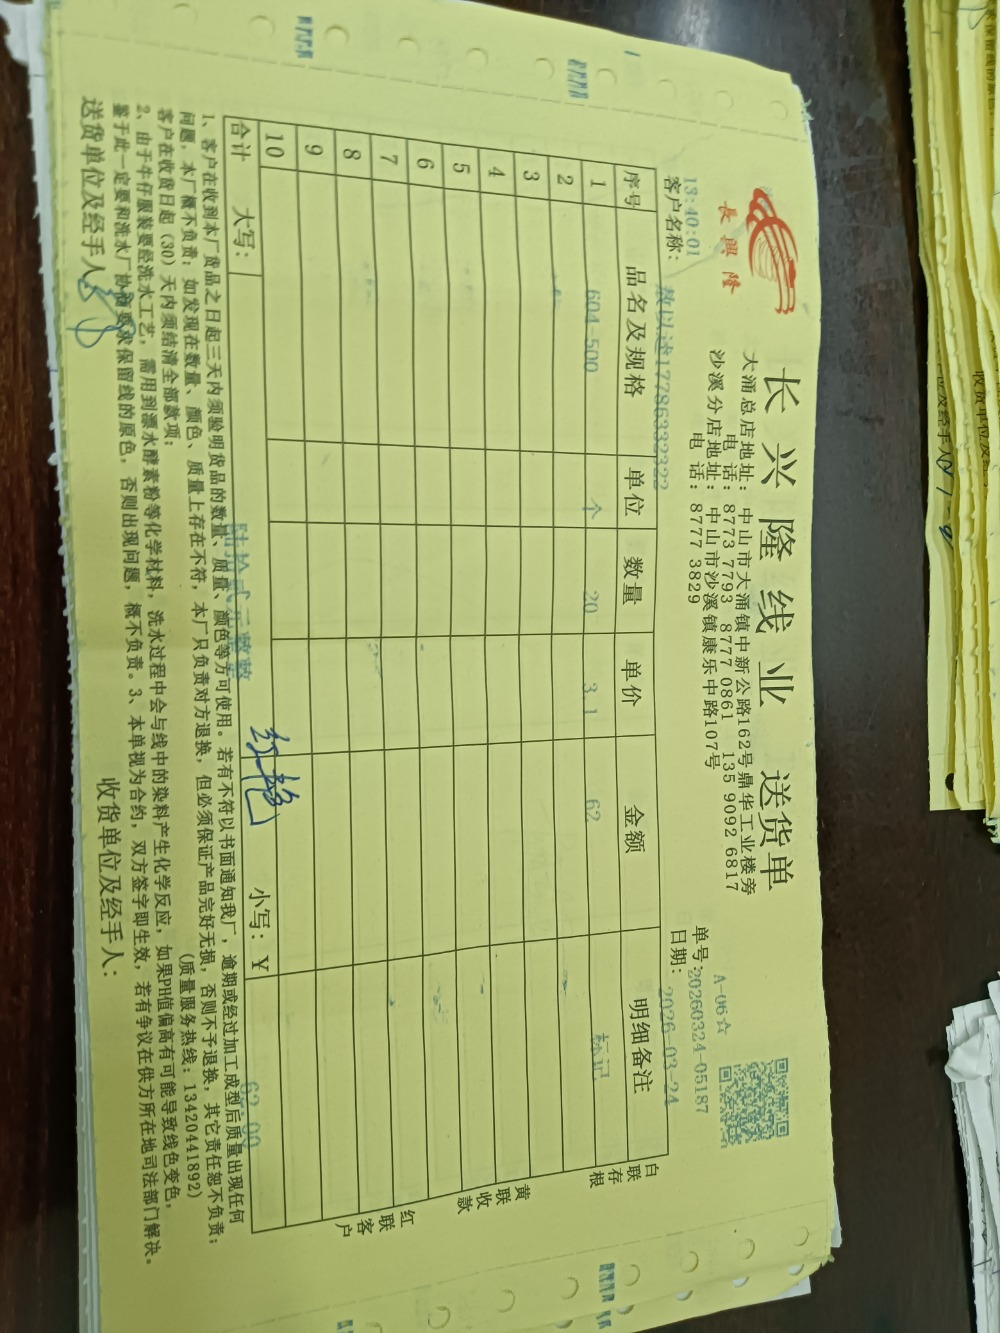 長興隆
长兴隆线业 送货单
大涌总店地址：中山市大涌镇中新公路162号鼎华工业楼旁
电 话：8773 7793 8777 0861 135 9092 6817
沙溪分店地址：中山市沙溪镇康乐中路107号
电 话：8777 3829
A-06☆
单号：20260324-05187
13:40:01
客户名称： 17786332322
日期：2026-03-24
序号 品名及规格 单位 数量 单价 金额 明细备注
1 604-500 个 20 3.1 62 标记
2
3
4
5
6
7
8
9
10
合计 大写： 陆拾贰元整 小写：￥ 62.00
白联存根
黄联收款
红联客户
1、客户在收到本厂货品之日起三天内须验明货品的数量、质量、颜色等方可使用。若有不符以书面通知我厂，逾期或经过加工成型后质量出现任何
问题，本厂概不负责；如发现在数量、颜色、质量上存在不符，本厂只负责对方退换，但必须保证产品完好无损，否则不予退换，其它责任恕不负责；
客户在收货日起（30）天内须结清全部款项； (质量服务热线：13420441892)
2、由于牛仔服装要经洗水工艺，需用到漂水酵素粉等化学材料，洗水过程中会与线中的染料产生化学反应，如果PH值偏高有可能导致线色变色，
鉴于此一定要和洗水厂协商要求保留线的原色，否则出现问题，概不负责。3、本单视为合约，双方签字即生效，若有争议在供方所在地司法部门解决。
送货单位及经手人： 收货单位及经手人：